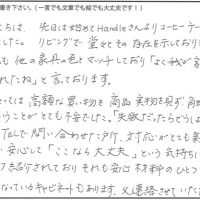 書き下さい。(一言でも文章でも絵でも大丈夫です!)
ちは、先日は始めてHandleさんよりコーヒーテー
した。リビングで堂々とその存在を示しており
も他の家具の色とマッチしており「よく我が家
れたね」と言ております。
っては高額な買い物を商品実物を見ず
うことがとても不安でした。「失敗だったらどうしよ
TELで問い合わせた所、対応がとても
安心して「ここなら大丈夫」という気持ち
が紹介されておりそれも安心材料のひとつ
なっているキャビネットもあります。又連絡させていただ